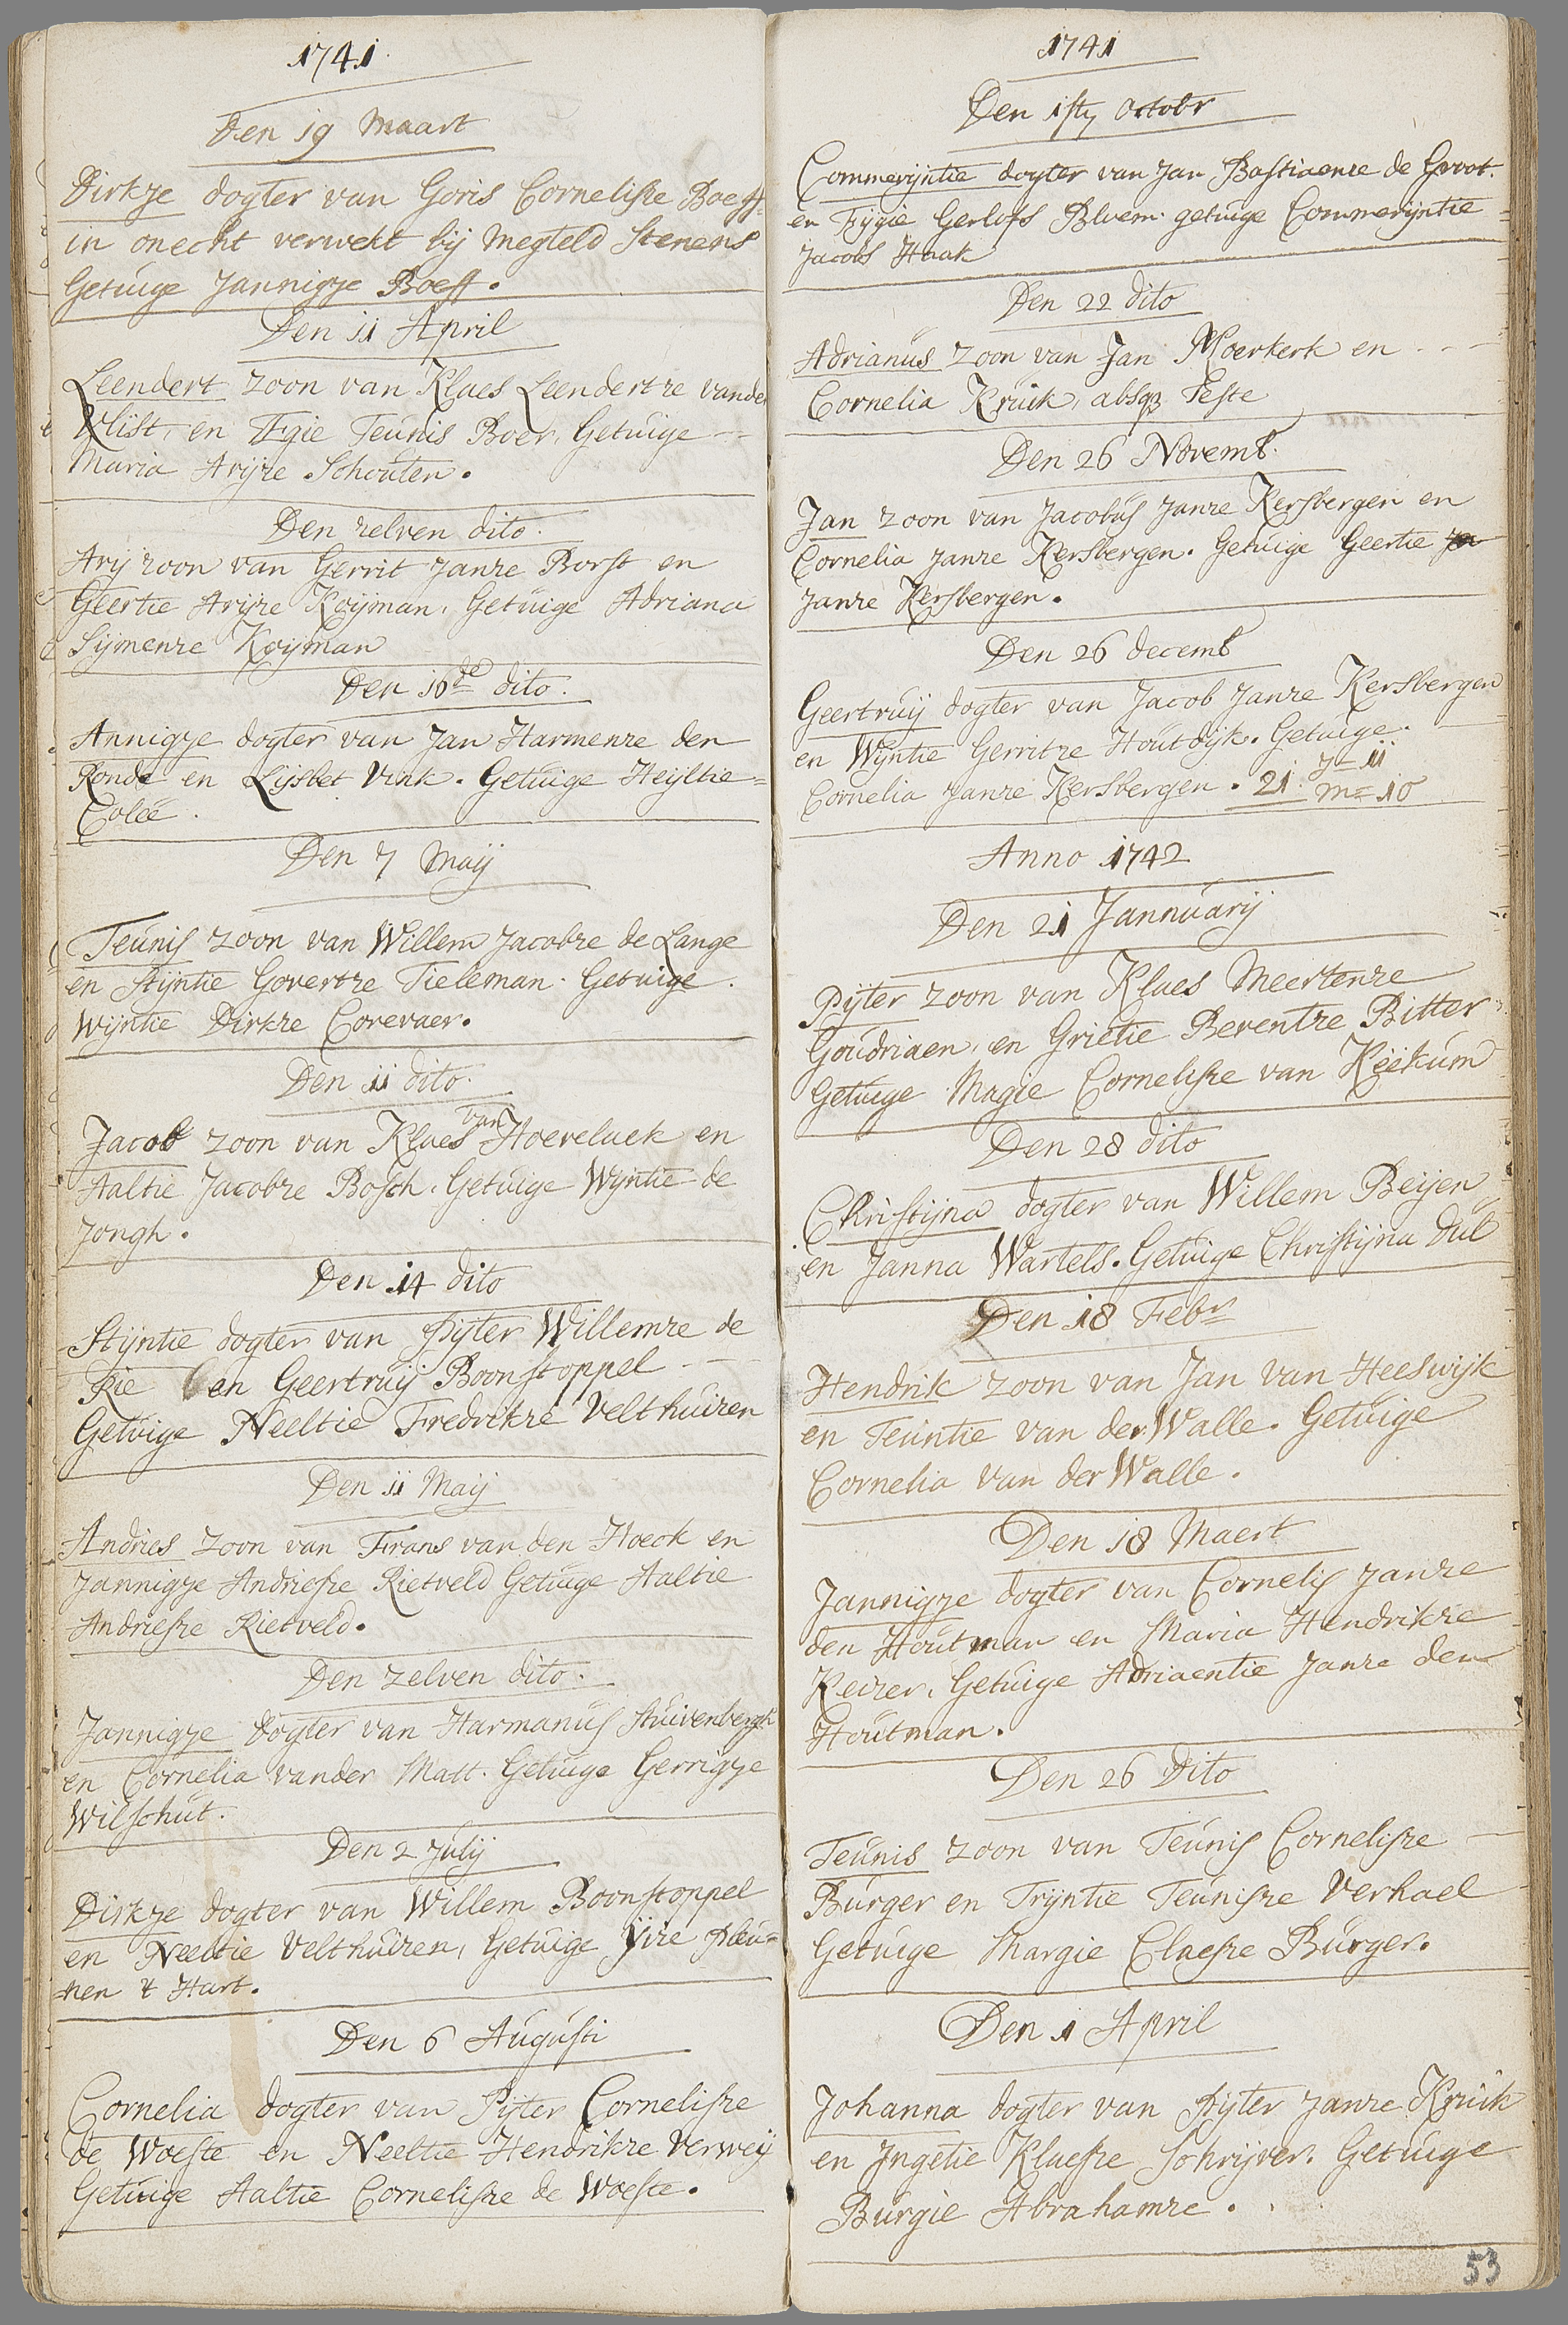 1741
Den 19 Maart
Dirkje dogter van Goris Cornelisze Boeff
in onecht verwekt bij Megteld Stenens
Getuige Jannigje Boeff.
Den 11 April
Leendert zoon van Klaes Leendertze vander
Wlist, en Egie Teunis Boer, Getuige
Maria Arijze Schouten.
Den zelven dito.
Arij zoon van Gerrit Janze Borst en
Geertie Arijze Koijman, Getuige Adriana
Sijmenze Koijman
Den 16de dito.
Annigje dogter van Jan Harmenze den
Ronde en Lijsbet Vink. Getuige Heijltie
Colée.
Den 7 Maij
Teunis zoon van Willem Jacobze de Lange
en Stijntie Govertze Tieleman. Getuige.
Wijntie Dirkze Corevaer.
Den 11 dito.
Jacob zoon van Klaes van Hoevelaek en
Aaltie Jacobze Bosch. Getuige Wijntie de
Jongh.
Den 14 dito
Stijntie dogter van Pijter Willemze de
Rie en Geertruij Boonstoppel
Getuige Neeltie Fredrikze Velthuizen
Den 11 Maij
Andries zoon van Frans van den Hoeck en
Jannigje Andriesze Rietveld Getuige Aaltie
Andriesze Rietveld.
Den zelven dito.
Jannigje dogter van Harmanus Stuivenbergh
en Cornelia vander Matt. Getuige Gerrigje
Wilschut.
Den 2 Julij
Dirkje dogter van Willem Boonstoppel
en Neeltie Velthuizen, Getuige Pleu=
=nen 't Hart.
Den 6 Augusti
Cornelia dogter van Pijter Cornelisze
de Woeste en Neeltie Hendrikze Verweij
Getuige Aaltie Cornelisze de Woeste.
1741
Den 1ste Octobr
Commerijntie dogter van Jan Bastiaenze de Groot.
en Fijgie Gerlofs Bloem. getuige Commerijntie
Jacobs Haak
Den 22 dito
Adrianus zoon van Jan Moerkerk en
Cornelia Kruik, absq3 Teste
Den 26 Novemb.
Jan zoon van Jacobus Janze Kersbergen en
Cornelia Janze Kersbergen. Getuige Geertie
Janze Kersbergen.
Den 26 decemb
Geertruij dogter van Jacob Janze Kersbergen
en Wijntie Gerritze Houtdijk. Getuige.
Cornelia Janze Kersbergen. 21. J= 11
m= 10
Anno 1742
Den 21 Jannuarij
Pijter zoon van Klaes Meertenze
Goudriaen, en Grietie Berentze Bitter
Getuige Magie Cornelisze van Keekum
Den 28 dito
Christijna dogter van Willem Beijen
en Janna Wartels. Getuige Christijna Dul
Den 18 Febr
Hendrik zoon van Jan van Heeswijk
en Teuntie van der Walle. Getuige
Cornelia van der Walle.
Den 18 Maert
Jannigje dogter van Cornelis Janze
den Houtman en Maria Hendrikze
Keizer, Getuige Adriaentie Janze den
Houtman.
Den 26 Dito
Teunis zoon van Teunis Cornelisze
Burger en Trijntie Teunisze Verhael
Getuige Margie Claesze Burger.
Den 1 April
Johanna dogter van Pijter Janze Kruik
en Ingetie Klaesze Schrijver. Getuige
Burgie Abrahamze.
53